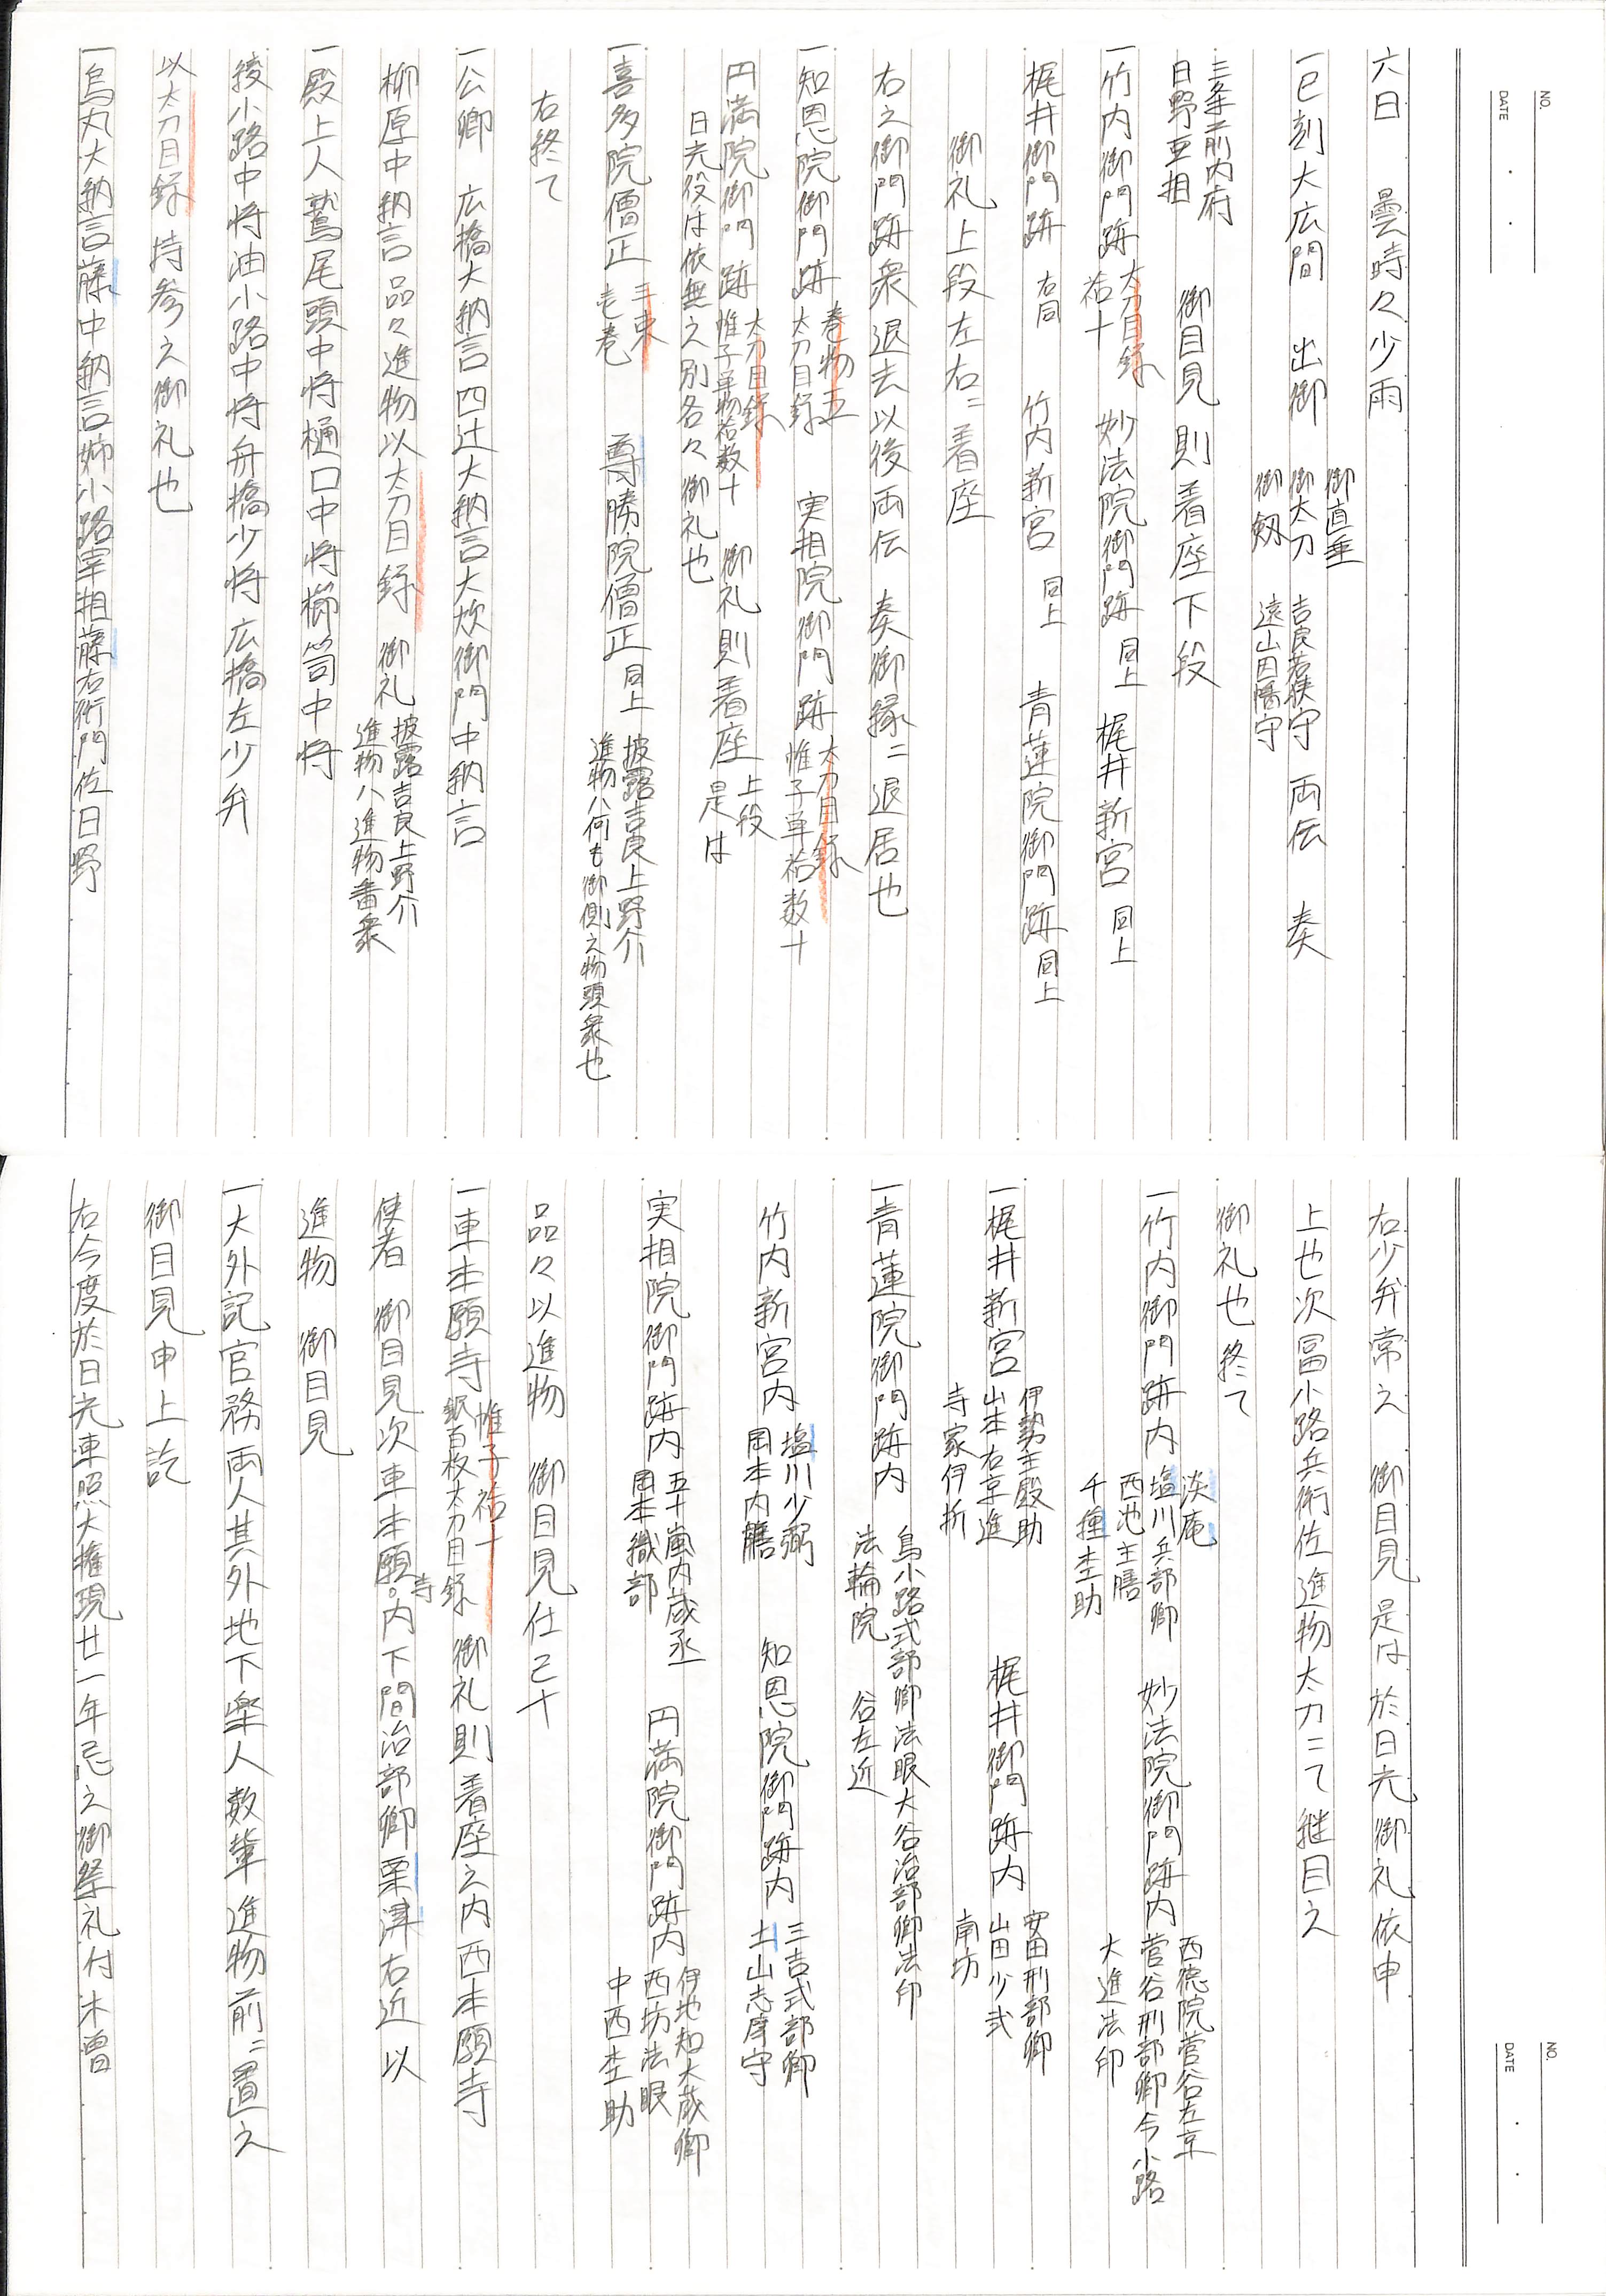 NO.
DATE
六日　曇時々少雨
一巳刻大広間　出御　御直垂
御太刀　吉良若狭守
御剱　遠山因幡守
両伝　奏
三条前内府
日野亜相
御目見　則着座下段
一竹内御門跡　太刀目録
袷十
妙法院御門跡　同上　梶井新宮　同上
梶井御門跡　右同　竹内新宮　同上　青蓮院御門跡　同上
御礼上段左右ニ着座
右之御門跡衆退去以後両伝　奏御縁ニ退居也
一知恩院御門跡　巻物五
太刀目録
実相院御門跡　太刀目録
帷子単袷数十
円満院御門跡　太刀目録
帷子単物袷数十
御礼則着座　上段
是は
日光役は依無之別各々御礼也
一喜多院僧正　三束
壱巻
尊勝院僧正　同上　披露吉良上野介
進物ハ何も御側之物頭衆也
右終て
一公卿　広橋大納言四辻大納言大炊御門中納言
柳原中納言品々進物以太刀目録　御礼　披露吉良上野介
進物ハ進物番衆
一殿上人鷲尾頭中将樋口中将櫛笥中将
綾小路中将油小路中将舟橋少将広橋左少弁
以太刀目録持参之御礼也
一烏丸大納言藤中納言姉小路宰相藤右衛門佐日野
NO.
DATE
右少弁常之　御目見是は於日光御礼依申
上也次冨小路兵衛佐進物太刀ニて継目之
御礼也終て
一竹内御門跡内　淡庵
塩川兵部卿
西池主膳
千種杢助
妙法院御門跡内　西徳院菅谷左京
菅谷刑部卿今小路
大進法印
一梶井新宮　伊勢主殿助
山本右京進
寺家伊折
梶井御門跡内　安田刑部卿
山田少弐
南坊
一青蓮院御門跡内　鳥小路式部卿法眼大谷治部卿法印
法輪院　谷左近
竹内新宮内　塩川少弼
岡本内膳
知恩院御門跡内　三吉式部卿
土山志摩守
実相院御門跡内　五十嵐内蔵丞
岡本織部
円満院御門跡内　伊地知大蔵卿
西坊法眼
中西杢助
品々以進物　御目見仕己十
一東本願寺　帷子袷十
銀百枚太刀目録
御礼則着座之内西本願寺
使者　御目見次東本願。寺内下間治部卿粟津右近以
進物　御目見
一大外記官務両人其外地下楽人数輩進物前ニ置之
御目見申上訖
右今度於日光東照大権現廿一年忌之御祭礼付木曽